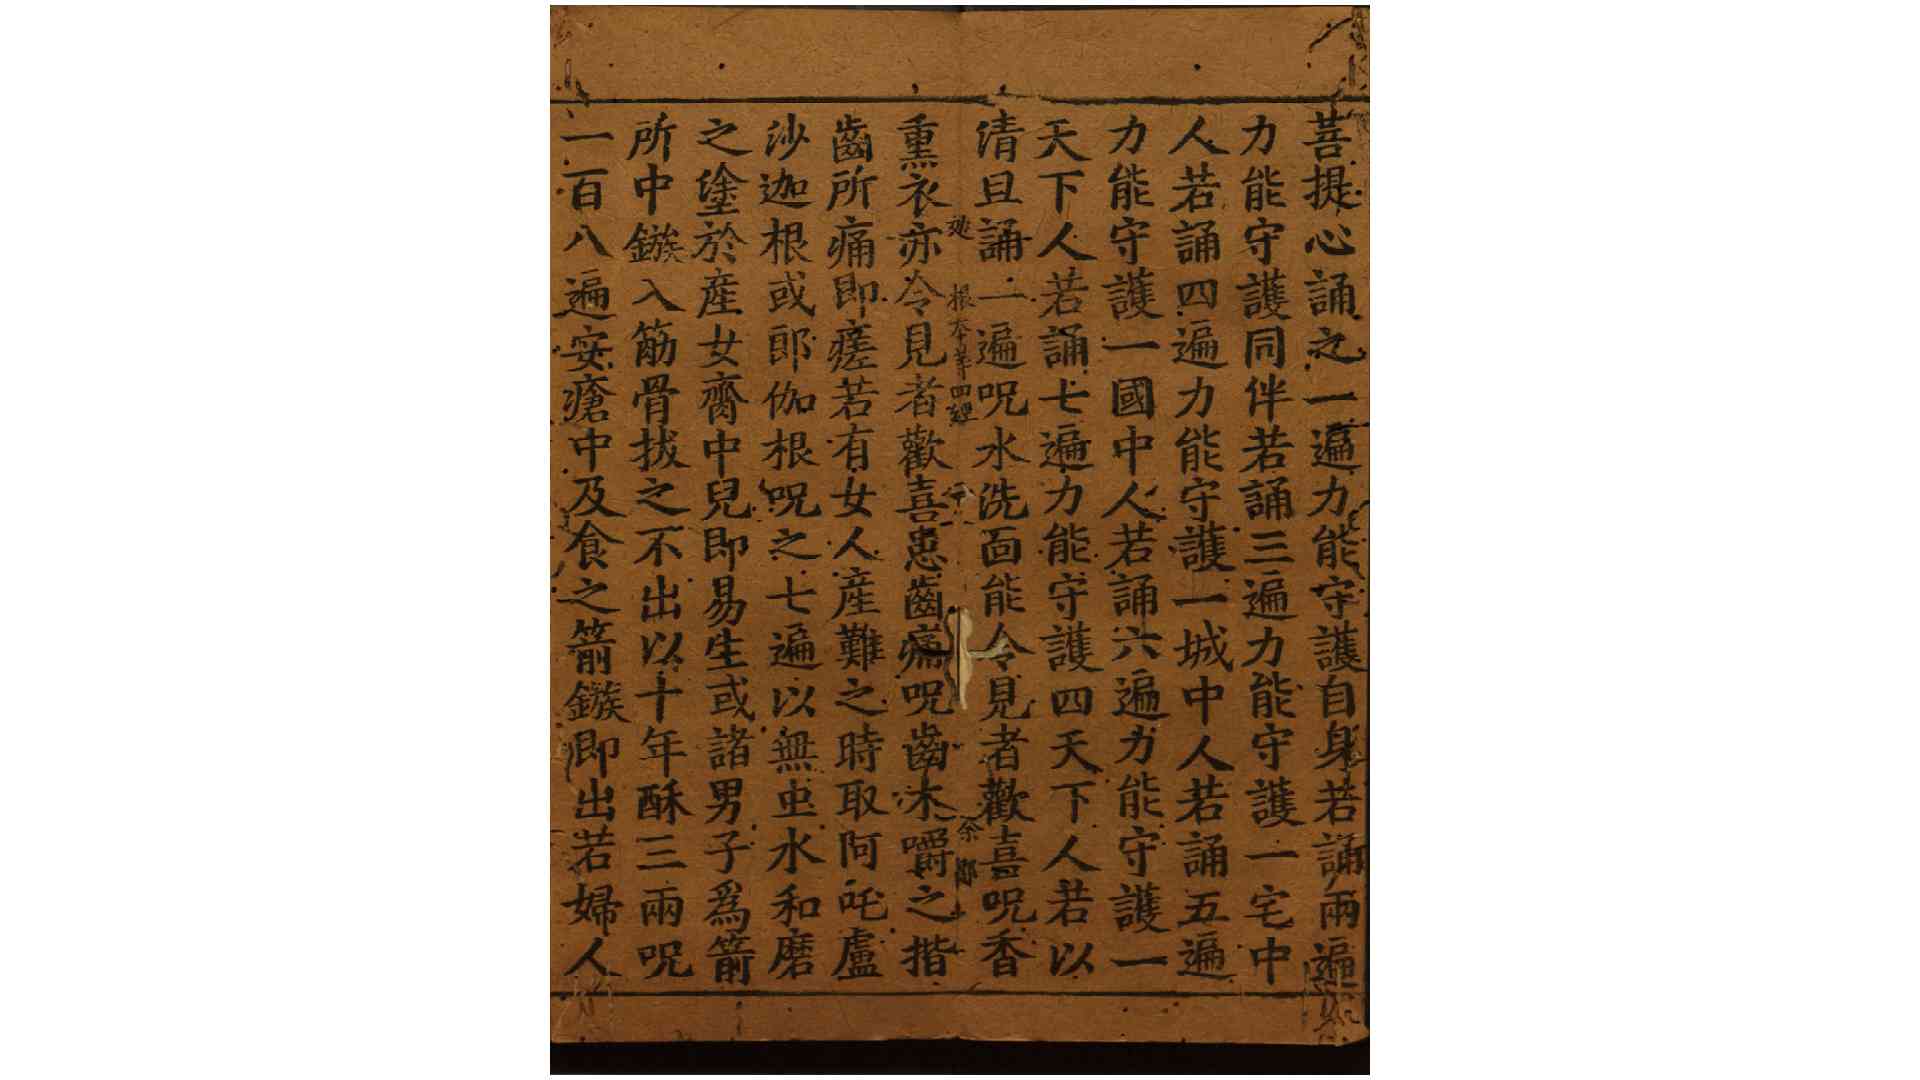 菩提心誦之一遍力能守護自身若誦兩遍
力能守護同伴若誦三遍力能守護一宅中
人若誦四遍力能守護一城中人若誦五遍
力能守護一國中人若誦六遍力能守護一
天下人若誦七遍力能守護四天下人若以
清旦誦一遍呪水洗面能令見者歡喜呪香
熏衣亦令見者歡喜患齒痛呪齒木嚼之揩
齒所痛即瘥若有女人産難之時取阿吒盧
沙迦根或郎伽根呪之七遍以無虫水和磨
之塗於産女齊中兒即易生或諸男子爲箭
所中鏃入筋骨拔之不出以十年酥三兩呪
一百八遍安瘡中及食之箭鏃即出若婦人